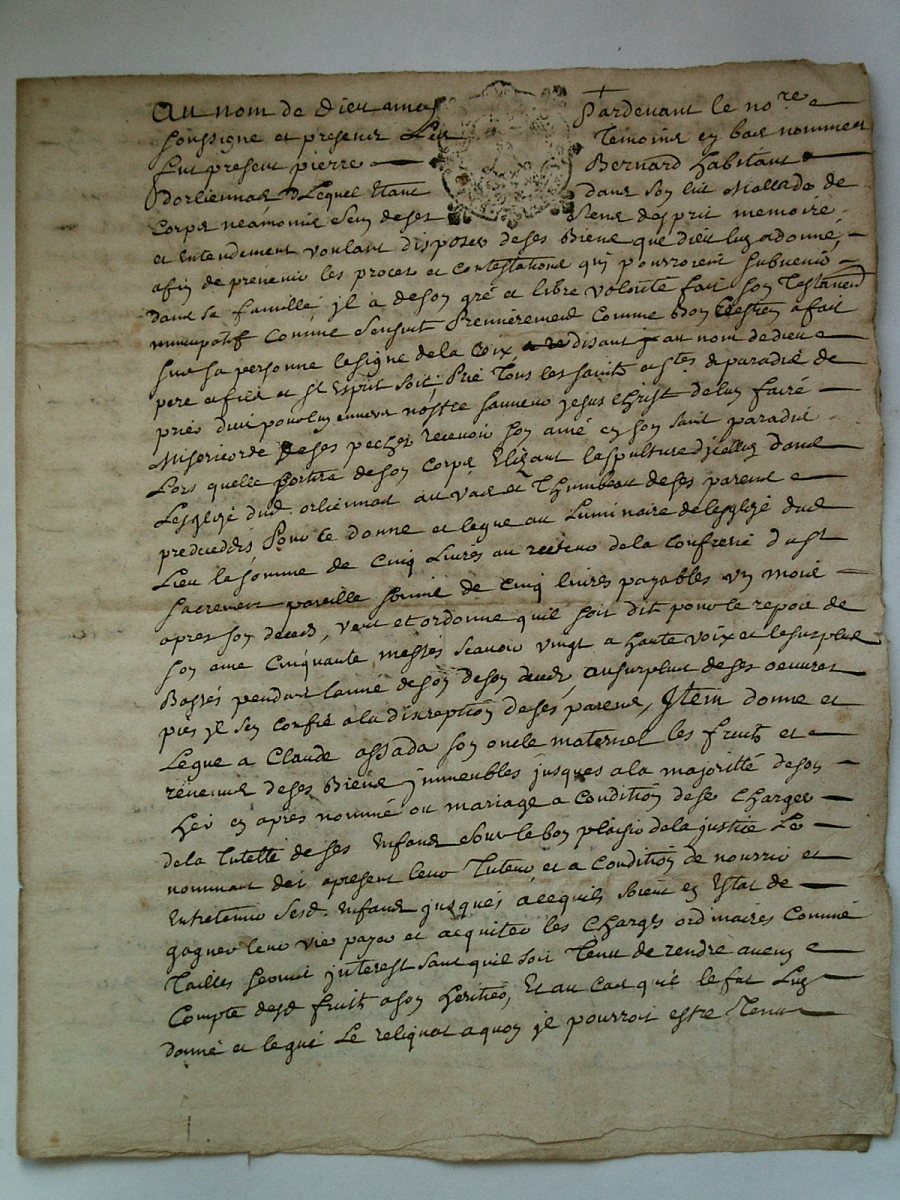 Au nom de Dieu amen Pardevant le no.re
soussigne et presens Les Temoins en bas nommes
fut present pierre Bernard habitant
Dorliennas Lequel Etant dans son lit Mallade de
Corps neamoins sein de ses sens desprit memoire
et Entendement voulant disposer de ses Biens que dieu luy a donné,
afin de prevenir les proces et contestations qui pouvroient subvenir
dans sa famille jl a de son gré et libre volonté fait son Testament
nuncupatif Comme sensuit Premierement Comme Bon Crestien a fait
sur sa personne le signe de la Croix, disant au nom de dieu
pere et fils et St Esprit soit, Prié Tous les saints de paradis de
prier dieu pour luy envers nostre sauveur jesus Christ de luy faire
Misericorde de ses pechez recevoir son ame en son saint paradis
Lors quelle sortira de son Corps Elizant la spulture dans
Lesglize dud. orliennas au vas et Thumbeau de ses parens
predecedés Pour ce donne et legue au Luminaire de lesglize dud
Lieu la somme de Cinq Livres au recteur de la Confrerie du St
Sacrement pareille somme de Cinq livres payables un mois
apres son deces, veut et ordonne quil soit dit pour le repos de
son ame Cinquante messes scavoir vingt a haute voix et le surplus
Basses pendant lanné de son deces, au surplus de ses oeuvres
pies jl sen confie a la discreption de ses parens, Jtem donne et
Legue a Claude assada son oncle maternel les fruits et
revenus de ses Biens jmmeubles jusques a la majoritté de son
Heri en apres nommé ou mariage a Condition de se Charger
de la Tutelle de ses Enfans sous le bon plaisir de la justice Le
nommant des apresent leur Tuteur et a Condition de nourrir et
Entretenir sesd. Enfans jusques acequils soient en Estat de
gagner leur vie payer et acquiter les Charges ordinaires Comme
Tailles jnterest sans quil soit Tenu de rendre aucun
Compte desd fruits a son heritier, Et au Cas qu'il le fut Luy
donne et legue Le reliquat a quoy jl pourroit estre Tenu